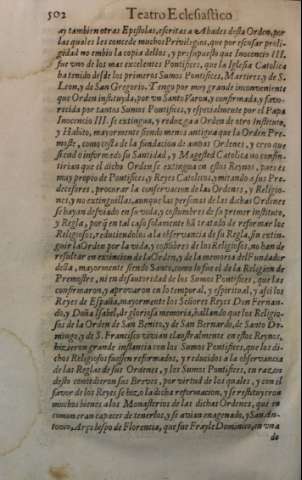 502 Teatro Eclesiastico
ay tambien otras Epistolas, escritas a Abades desta Orden, por
las quales les concede muchos Privilegios, que por escusar proli-
gidad no embio la copia dellos, y presupuesto que Inocencio III.
fue vno de los mas excelentes Pontifices, que la Iglesia Catolica
ha tenido desde los primeros Sumos Pontifices, Martires, y de S.
Leon, y de San Gregorio. Tengo por muy grande inconveniente
que Orden instituyda, por vn Santo Varon, y confirmada, y favo-
recida por tantos Sumos Pontifices, y especialmente por el Papa
Inocencio III. se extingua, y reduzga a Orden de otro Instituto,
y Habito, mayormente siendo menos antigua que la Orden Pre-
moste, como consta de la fundacion de ambas Ordenes, y creo que
siendo informado su Santidad, y Magestad Catolica no consin-
tirian que el dicha Orden se extingua en estos Reynos, pues es
muy propio de Pontifices, y Reyes Catolicos, y mirando a sus Pre-
decesores, procurar la conservacion de las Ordenes, y Religio-
nes, y no extinguillas, aunque las personas de las dichas Ordenes
se hayan desviado en su vida, y costumbres de su primer instituto,
y Regla, porq̃ en tal caso solamente hã tratado de reformar los
Religiosos, reduciendolos a la observancia de su Regla, sin extin-
guir la Orden por la vida, y costũbres de los Religiosos, no han de
resultar en extincion de la Orden, y de la memoria del Fundador
della, mayormente siendo Santo, como lo fue el de la Religion de
Premostre, ni en desautoridad de los Sumos Pontifices, que las
confirmaron, y aprovaron en lo temporal, y espiritual, y assi los
Reyes de España, mayormente los Señores Reyes Don Fernan-
do, y Doña Isabel, de gloriosa memoria, hallando que los Religio-
sos de la Orden de San Benito, y de San Bernardo, de Santo Do-
mingo, y de S. Francisco vivian claustralmente en estos Reynos,
hizieron grande instancia con los Sumos Pontifices, que los di-
chos Religiosos fuessen reformados, y reducidos a la observancia
de las Reglas de sus Ordenes, y los Sumos Pontifices, en razon
desto concedieron sus Breves, por virtud de los quales, y con el
favor de los Reyes se hizo la dicha reformacion, y se restituyeron
muchos bienes a los Monasterios de las dichas Ordenes, que en
comun eran capaces de tenerlos, y se avian enagenado, y San An-
tonio, Arçobispo de Florencia, que fue Frayle Dominico, en vna
de